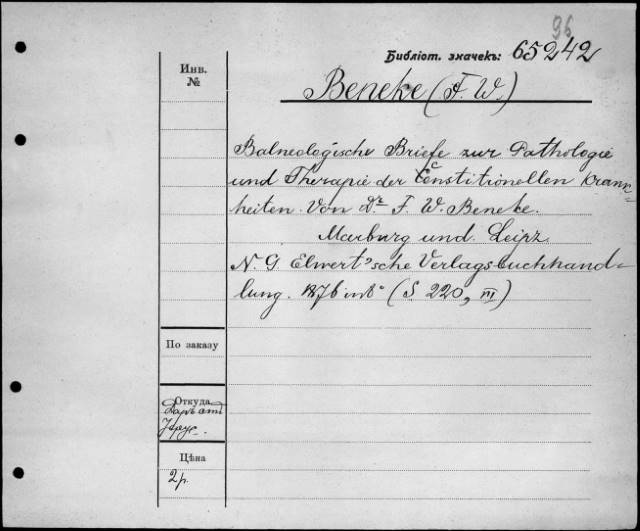 96
Библіот. значекъ: 65242
Инв.
№
Beneke (F. W.)
Balneologische Briefe zur Pathologie
und Therapie der Constitionellen Krank=
heiten. Von Dr F. W. Beneke.
Marburg und Leipz
N. G Elwert'sche Verlagsbuchhand=
lung. 1876 in 8° (S 220, III)
По заказу
Откуда
Даръ отъ
Цѣна
2 р.